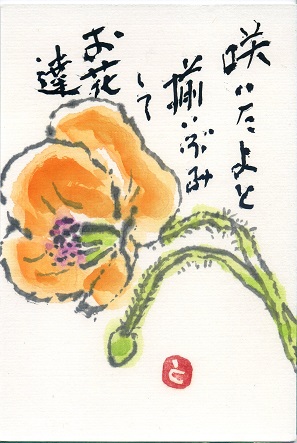 咲いたよと
揃いぶみ
して
お花
達
と